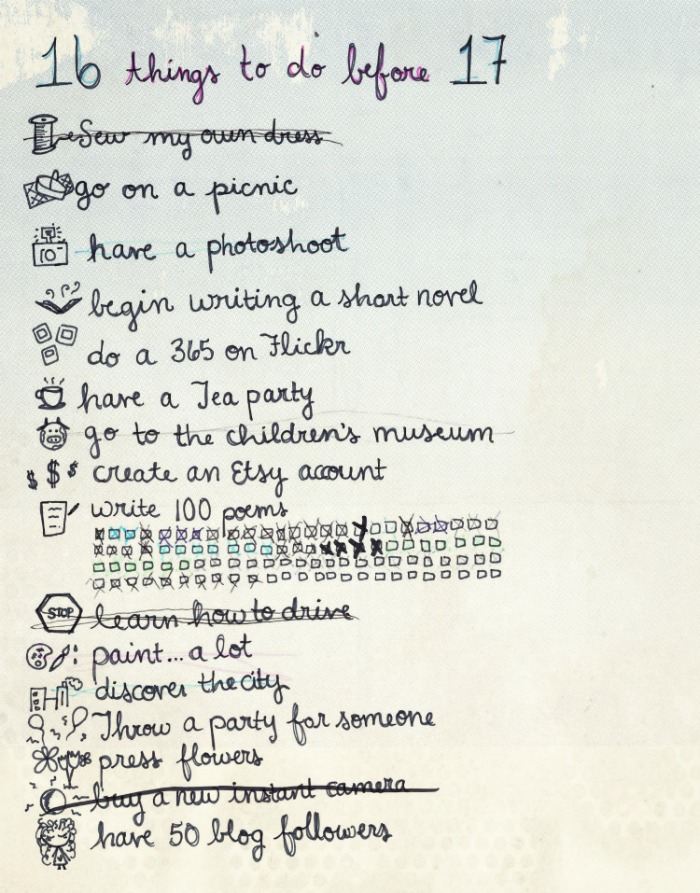 16 things to do before 17
Sew my own dress
go on a picnic
have a photoshoot
begin writing a short novel
do a 365 on Flickr
have a Tea party
go to the children's museum
$ $ $ create an Etsy account
write 100 poems
STOP learn how to drive
paint... a lot
discover the city
Throw a party for someone
press flowers
buy a new instant camera
have 50 blog followers